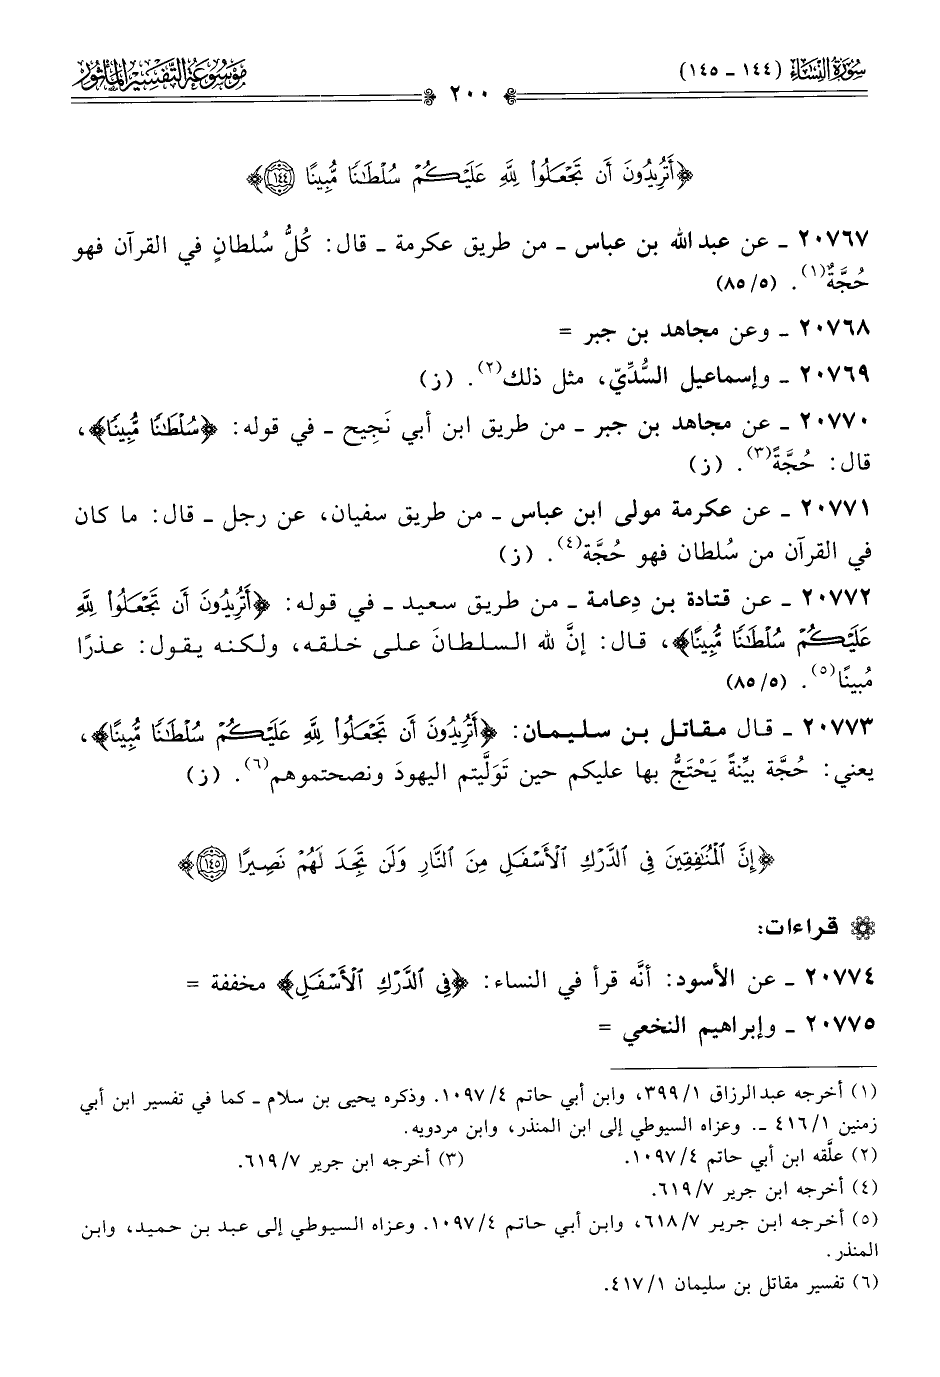 سُورَةُ النِّسَاءِ (١٤٤ - ١٤٥)
٢٠٠
مَوْسُوعَةُ التَّفْسِيرِ المَأْثُورِ
﴿أَتُرِيدُونَ أَن تَجْعَلُوا۟ لِلَّهِ عَلَيْكُمْ سُلْطَٰنًا مُّبِينًا ١٤٤﴾
٢٠٧٦٧ ـ عن عبد الله بن عباس ـ من طريق عكرمة ـ قال: كُلُّ سُلطانٍ في القرآن فهو
حُجَّةٌ(١). (٨٥/٥)
٢٠٧٦٨ ـ وعن مجاهد بن جبر =
٢٠٧٦٩ ـ وإسماعيل السُّدِّيّ، مثل ذلك(٢). (ز)
٢٠٧٧٠ ـ عن مجاهد بن جبر ـ من طريق ابن أبي نَجِيح ـ في قوله: ﴿سُلْطَٰنًا مُّبِينًا﴾،
قال: حُجَّةً(٣). (ز)
٢٠٧٧١ ـ عن عكرمة مولى ابن عباس ـ من طريق سفيان، عن رجل ـ قال: ما كان
في القرآن من سُلطان فهو حُجَّة(٤). (ز)
٢٠٧٧٢ ـ عن قتادة بن دِعامة ـ من طريق سعيد ـ في قوله: ﴿أَتُرِيدُونَ أَن تَجْعَلُوا۟ لِلَّهِ
عَلَيْكُمْ سُلْطَٰنًا مُّبِينًا﴾، قال: إنَّ لله السلطانَ على خلقه، ولكنه يقول: عذرًا
مُبينًا(٥). (٨٥/٥)
٢٠٧٧٣ ـ قال مقاتل بن سليمان: ﴿أَتُرِيدُونَ أَن تَجْعَلُوا۟ لِلَّهِ عَلَيْكُمْ سُلْطَٰنًا مُّبِينًا﴾،
يعني: حُجَّة بيِّنةً يَحْتَجُّ بها عليكم حين تَوَلَّيتم اليهودَ ونصحتموهم(٦). (ز)
﴿إِنَّ ٱلْمُنَٰفِقِينَ فِى ٱلدَّرْكِ ٱلْأَسْفَلِ مِنَ ٱلنَّارِ وَلَن تَجِدَ لَهُمْ نَصِيرًا ١٤٥﴾
قراءات:
٢٠٧٧٤ ـ عن الأسود: أنَّه قرأ في النساء: ﴿فِى ٱلدَّرْكِ ٱلْأَسْفَلِ﴾ مخففة =
٢٠٧٧٥ ـ وإبراهيم النخعي =
(١) أخرجه عبدالرزاق ٣٩٩/١، وابن أبي حاتم ١٠٩٧/٤. وذكره يحيى بن سلام ـ كما في تفسير ابن أبي
زمنين ٤١٦/١ ـ. وعزاه السيوطي إلى ابن المنذر، وابن مردويه.
(٢) علَّقه ابن أبي حاتم ١٠٩٧/٤. (٣) أخرجه ابن جرير ٦١٩/٧.
(٤) أخرجه ابن جرير ٦١٩/٧.
(٥) أخرجه ابن جرير ٦١٨/٧، وابن أبي حاتم ١٠٩٧/٤. وعزاه السيوطي إلى عبد بن حميد، وابن
المنذر.
(٦) تفسير مقاتل بن سليمان ٤١٧/١.